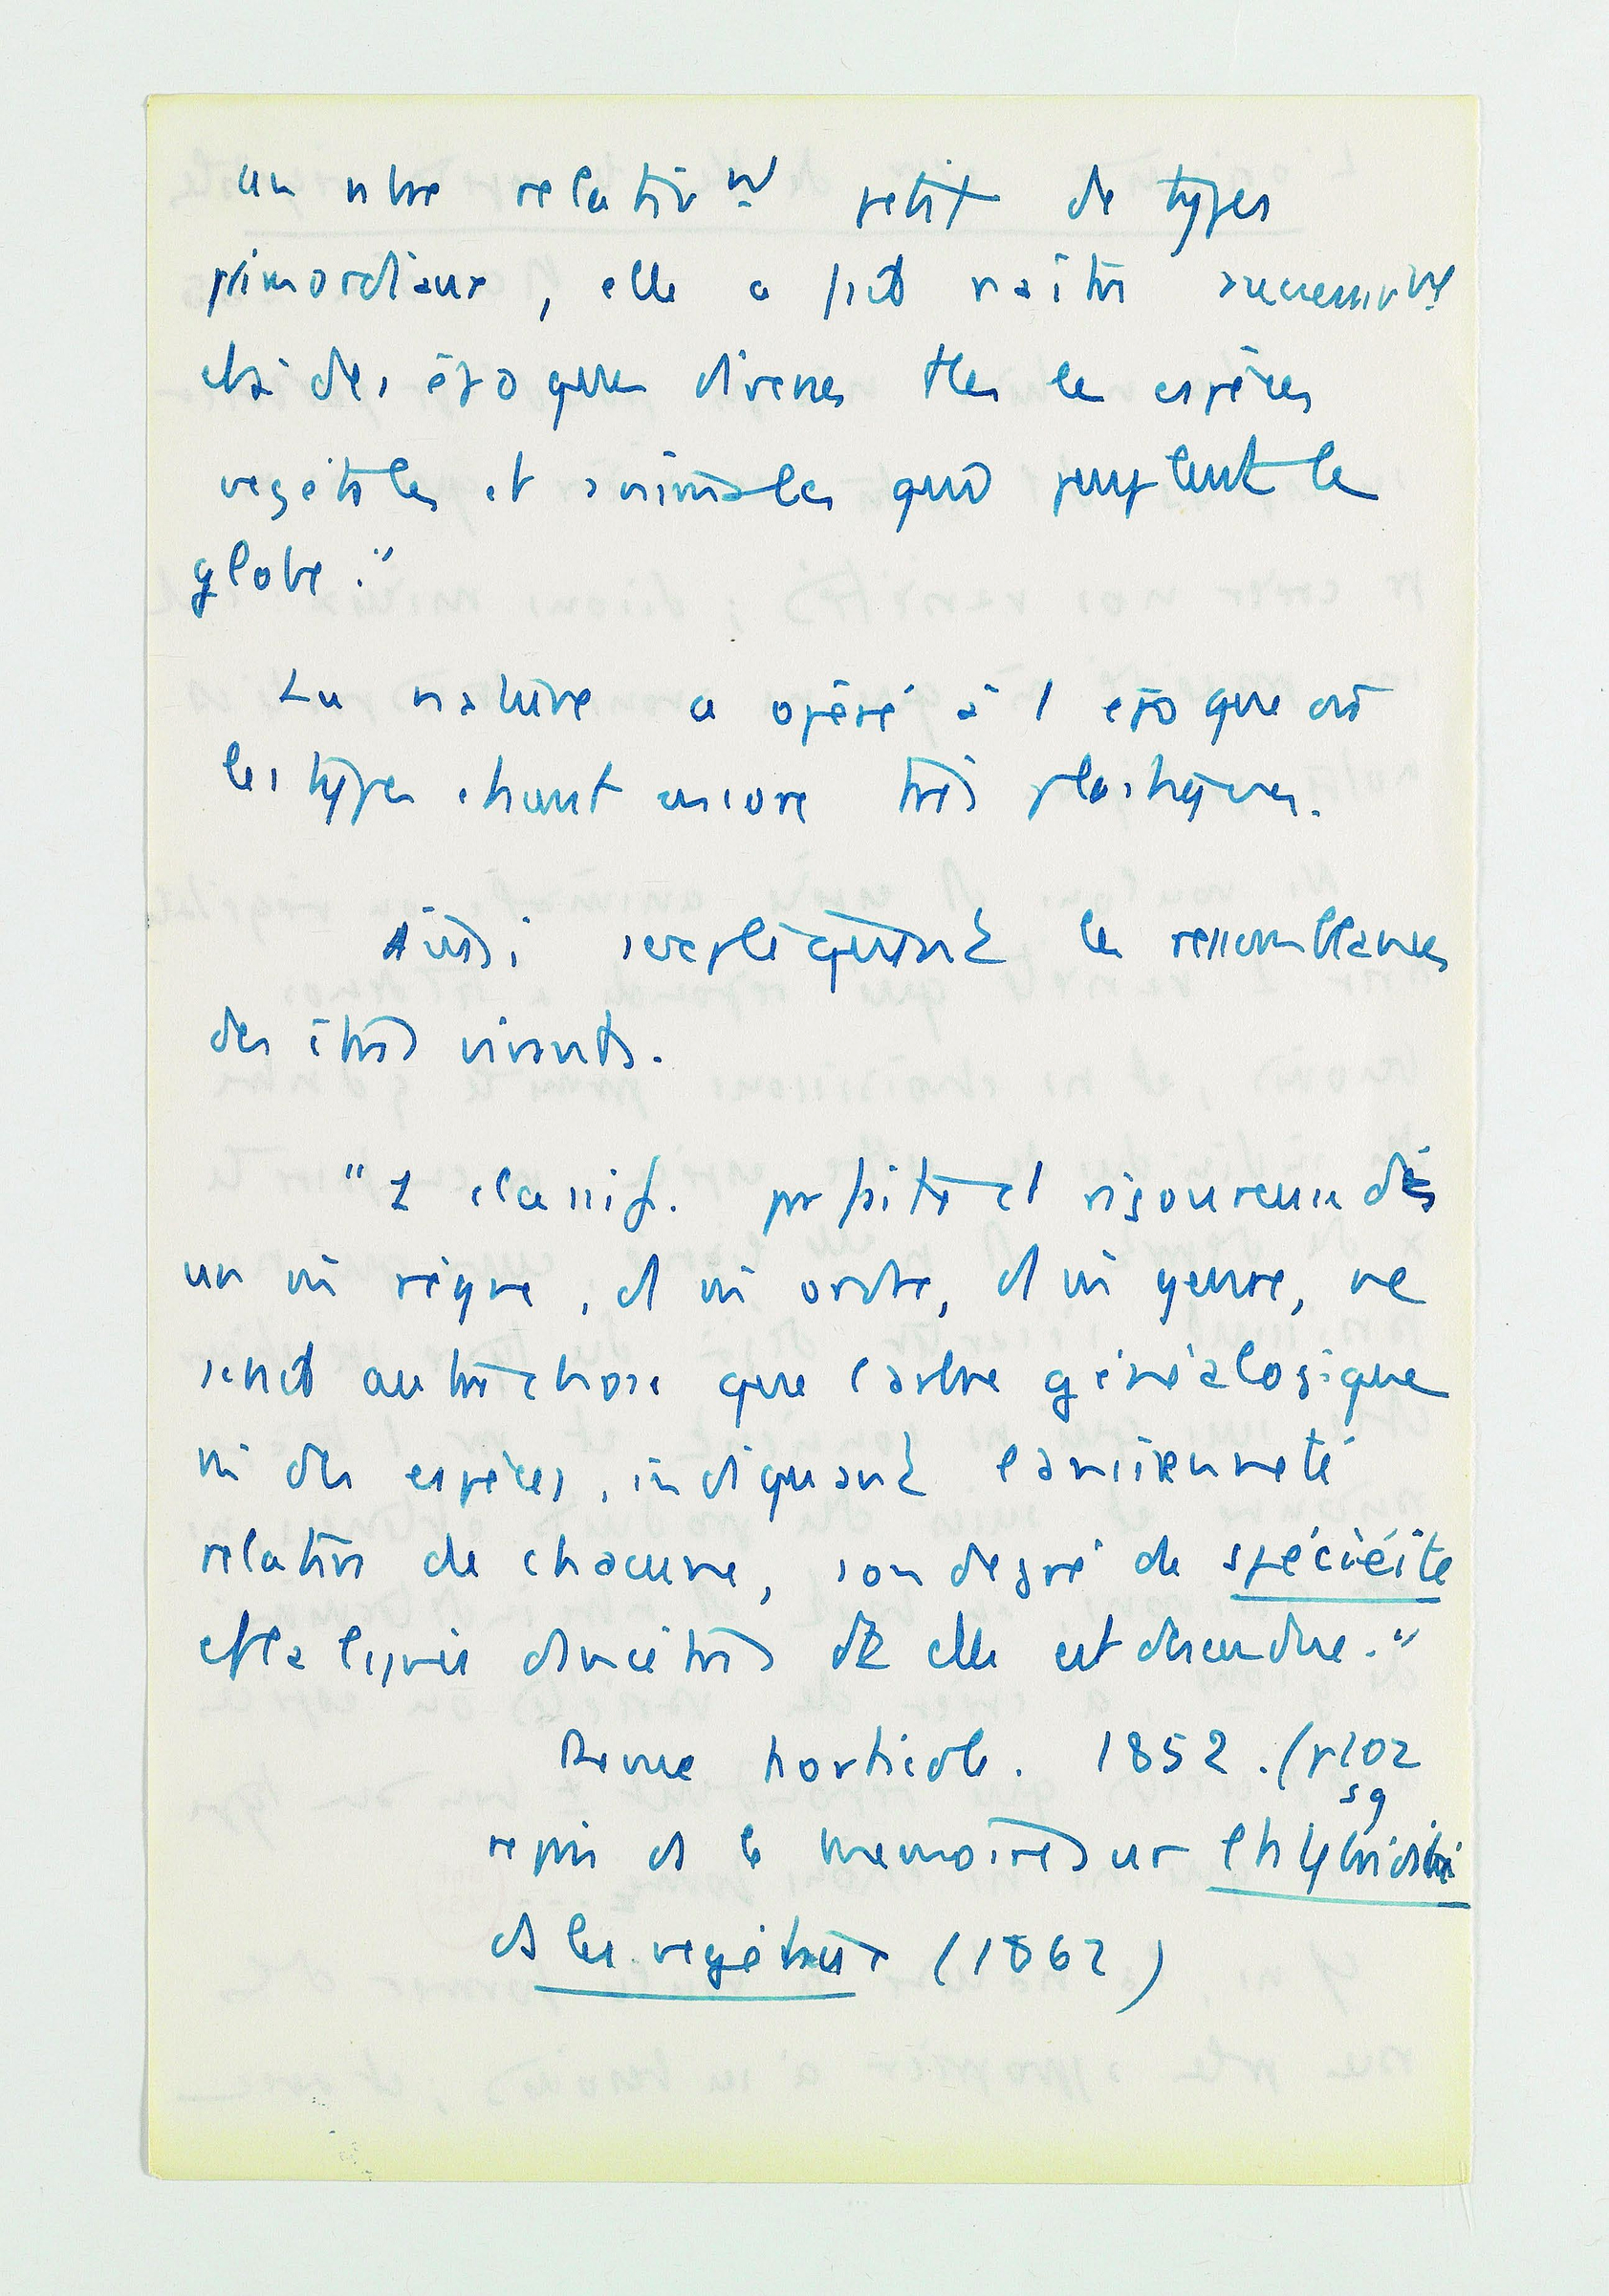 un nbre relativnt petit de types
primordiaux, elle a fait naître successivnt
et à des époques diverses ttes les espèces
végétales et animales qui peuplent le
globe."
La nature a opéré à l époque où
les types étaient encore très plastiques.
Ainsi s'expliquerait les ressemblances
des êtres vivants.
"1 classif. parfaite et rigoureuse des
un m̄ règne, d m̄ ordre, d m̄ genre, ne
serait autre chose que l'arbre généalogique
m̄ des espèces, indiquant l'ancienneté
relative de chacune, son degré de spéciéité
et la lignée d'ancêtres dt elle est descendue."
Revue horticole. 1852. (p102
sq
repris ds le mémoire sur l'hybridité
ds les végétaux (1862)